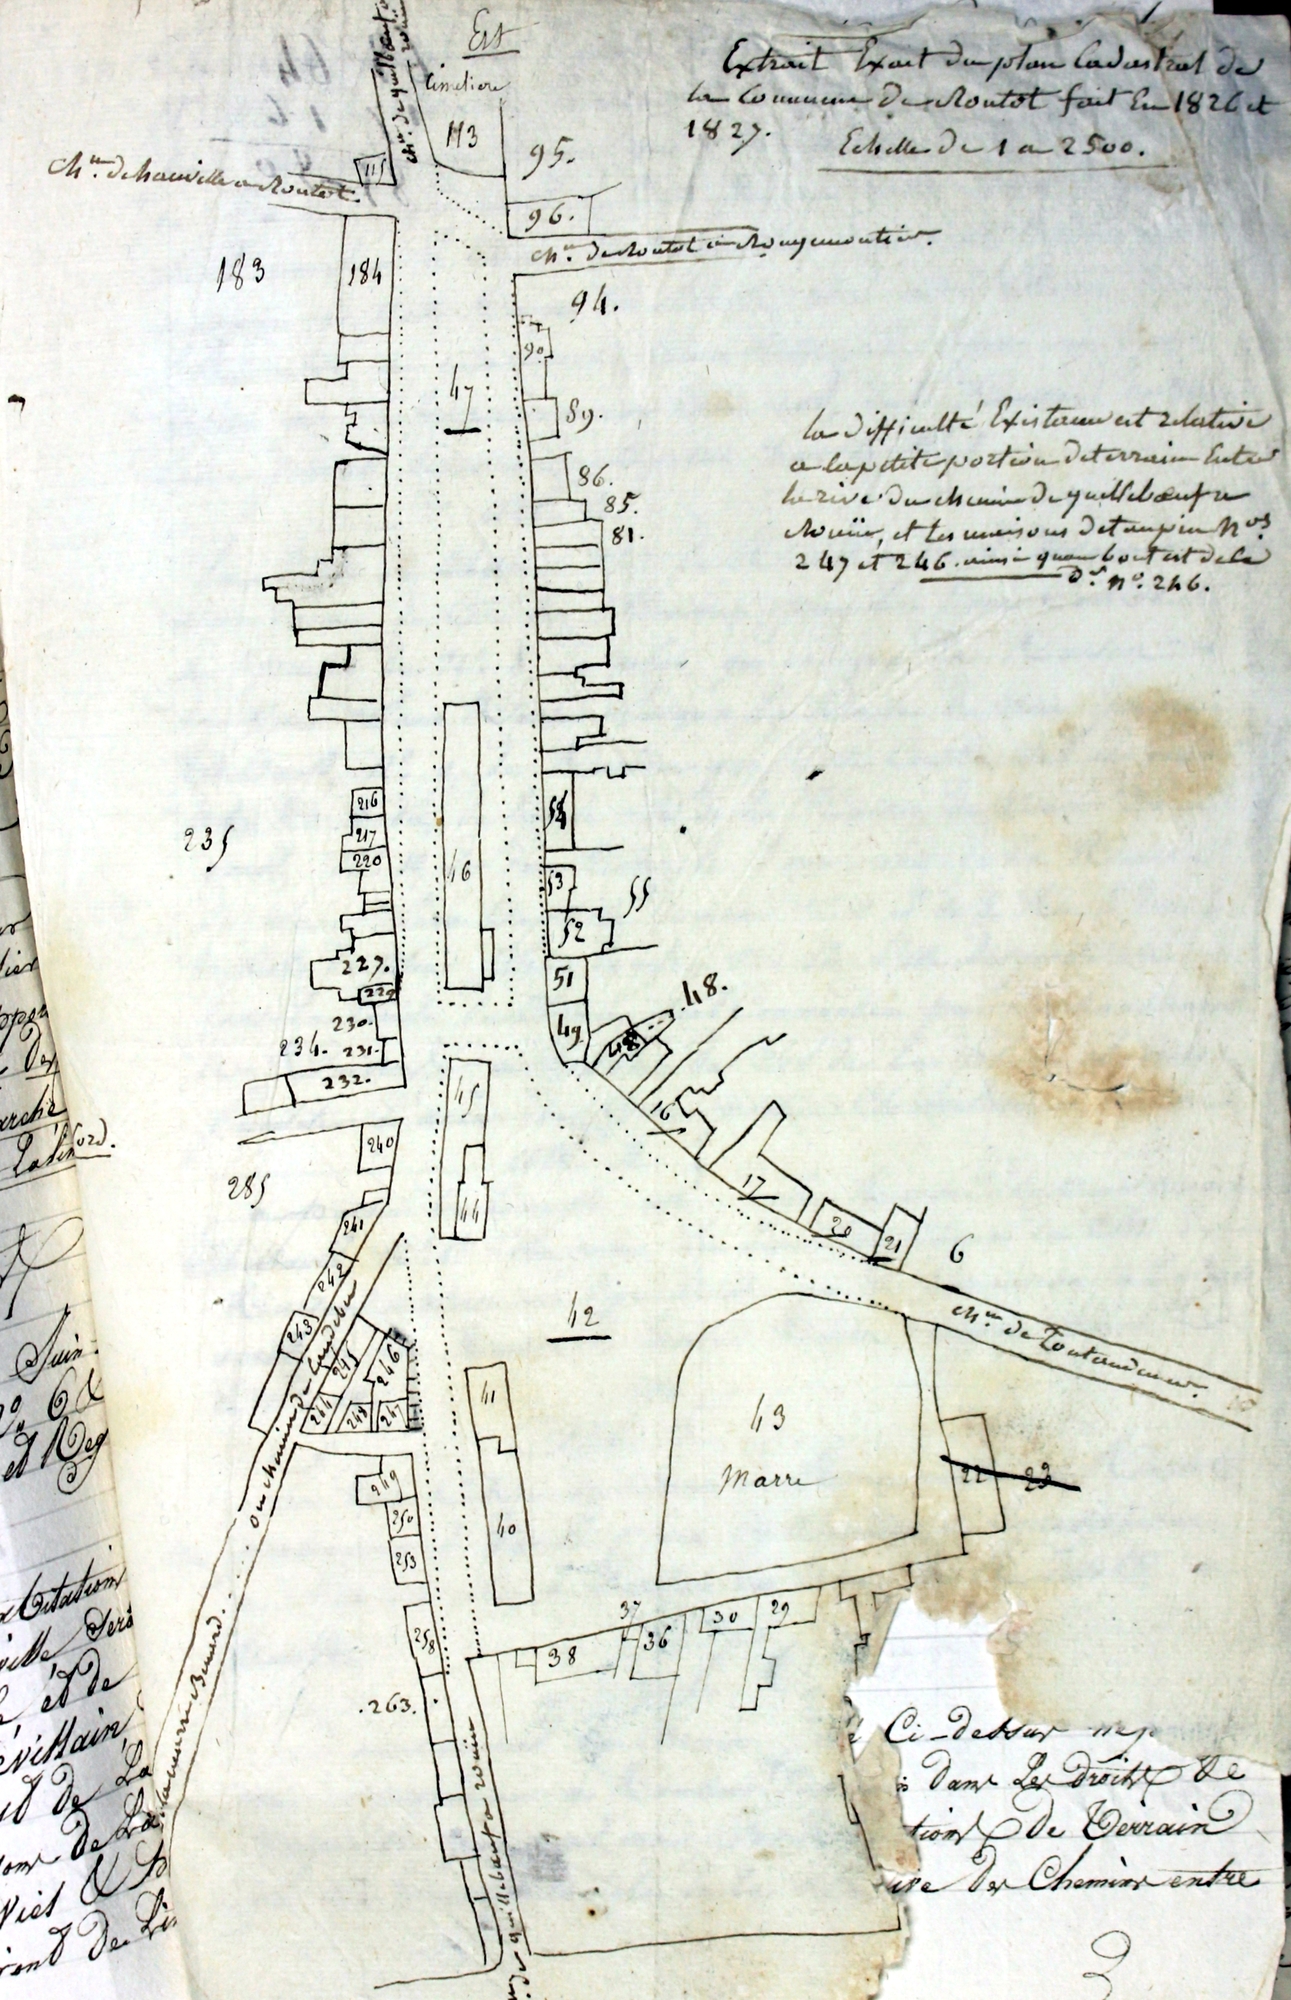 Est
Extrait Exact du plan Cadastral de
la Commune De Routot fait En 1826 et
1827.
Echelle De 1 a 2500.
Cimetiere
113
95.
115
chn. de quillebeuf a rouen
chn. de hauville a Routot.
96.
chn. de Routot a Rougemontier.
183
184
94.
90
47
89.
la difficulté Existante est relative
a la petite portion de terrain Entre
la rive du chemin de quillebœuf a
Rouën, et les maisons de taupin Nos
247 et 246. ainsi quau bout est de la
Dte. no. 246.
86.
85.
81.
216
217
220
235
54
46
53
55
52
227.
229
51
230.
48.
49
48
234.
231.
232.
45
16
240
285
44
17
241
20
21
6
242
42
chn. de
243
ou chemin de
245
246
244
248
247
41
43
Marre
22
23
249
250
253
40
37
30
29
258
38
36
.263.
de quillebeuf a rouen
Ci-dessus
dans Les droits de
de Terrain
Des Chemins entre
3
Juin
no 6 &
et Reg
ville
et de
de La
de La